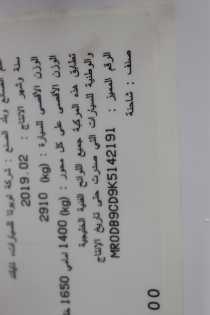 سنة وشهر الانتاج : 2019.02
الوزن الأقصى للسيارة : (kg) 2910
الوزن الأقصى على كل محور : (kg) 1400 أمامي 1650
تطابق هذه المركبة جميع اللوائح الفنية الخليجية
والوطنية للسيارات التي صدرت حتى تاريخ الانتاج
الرقم المميز : MR0D89CD9K5142191
صنف : شاحنة
00